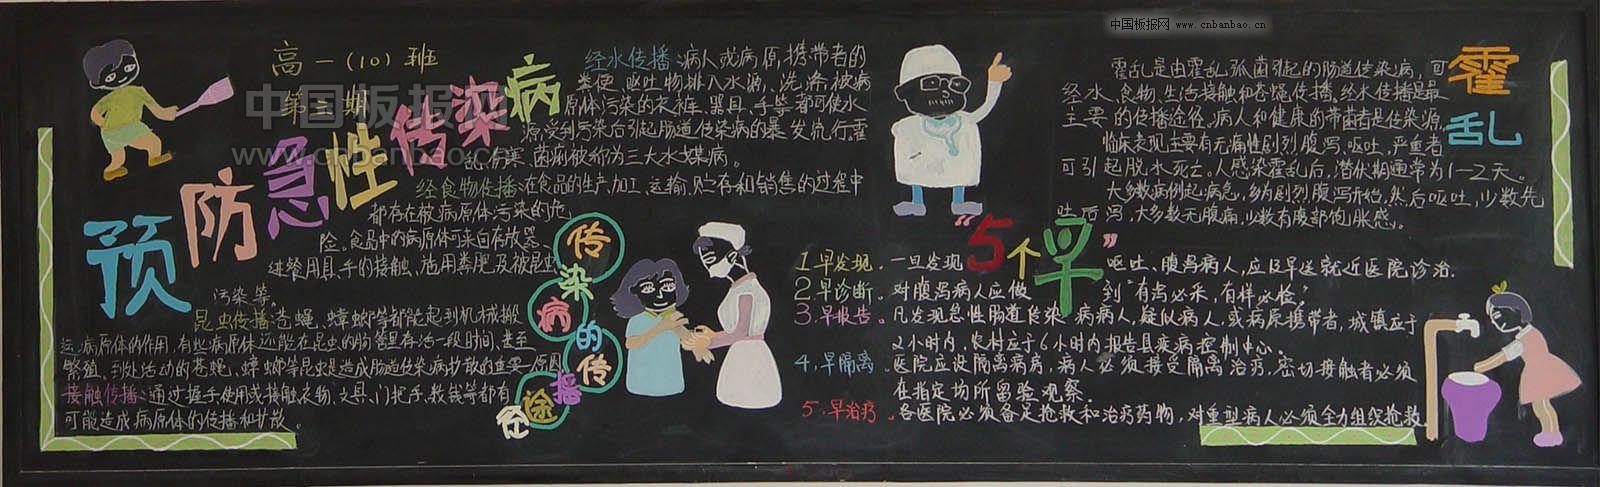 中国板报网 www.cnbanbao.cn
高一(10)班
第三期
中国板报网
www.cnbanbao.cn
预防急性传染病
经水传播:病人或病原携带者的
粪便、呕吐物排入水源、洗涤被病
原体污染的衣裤、器具、手等都可使水
源受到污染后引起肠道传染病的暴发流行。霍
乱、伤寒、菌痢被称为三大水媒病。
经食物传播:在食品的生产、加工、运输、贮存和销售的过程中
都存在被病原体污染的危
险。食品中的病原体可来自存放器、
进餐用具、手的接触、施用粪肥及被昆虫
污染等。
昆虫传播:苍蝇、蟑螂等都能起到机械搬
运病原体的作用,有些病原体还能在昆虫的肠管里存活一段时间、甚至
繁殖。到处活动的苍蝇、蟑螂等昆虫是造成肠道传染病扩散的重要原因
接触传播:通过握手、使用或接触衣物、文具、门把手、钱等都有
可能造成病原体的传播和扩散。
传染病的传播途径
霍乱
霍乱是由霍乱弧菌引起的肠道传染病,可
经水、食物、生活接触和苍蝇传播。经水传播是最
主要的传播途径。病人和健康的带菌者是传染源,
临床表现主要有无痛性剧烈腹泻、呕吐,严重者
可引起脱水死亡。人感染霍乱后,潜伏期通常为1-2天。
大多数病例起病急,多为剧烈腹泻开始,然后呕吐,少数先
吐后泻,大多数无腹痛,少数有腹部饱胀感。
“5个早”
1.早发现。一旦发现呕吐、腹泻病人,应及早送就近医院诊治.
2.早诊断。对腹泻病人应做到“有泻必采,有样必检”
3.早报告。凡发现急性肠道传染病病人,疑似病人,或病原携带者,城镇应于
2小时内,农村应于6小时内报告县疾病控制中心。
4.早隔离 医院应设隔离病房,病人必须接受隔离治疗,密切接触者必须
在指定场所留验观察.
5.早治疗.各医院必须备足抢救和治疗药物,对重型病人必须全力组织抢救